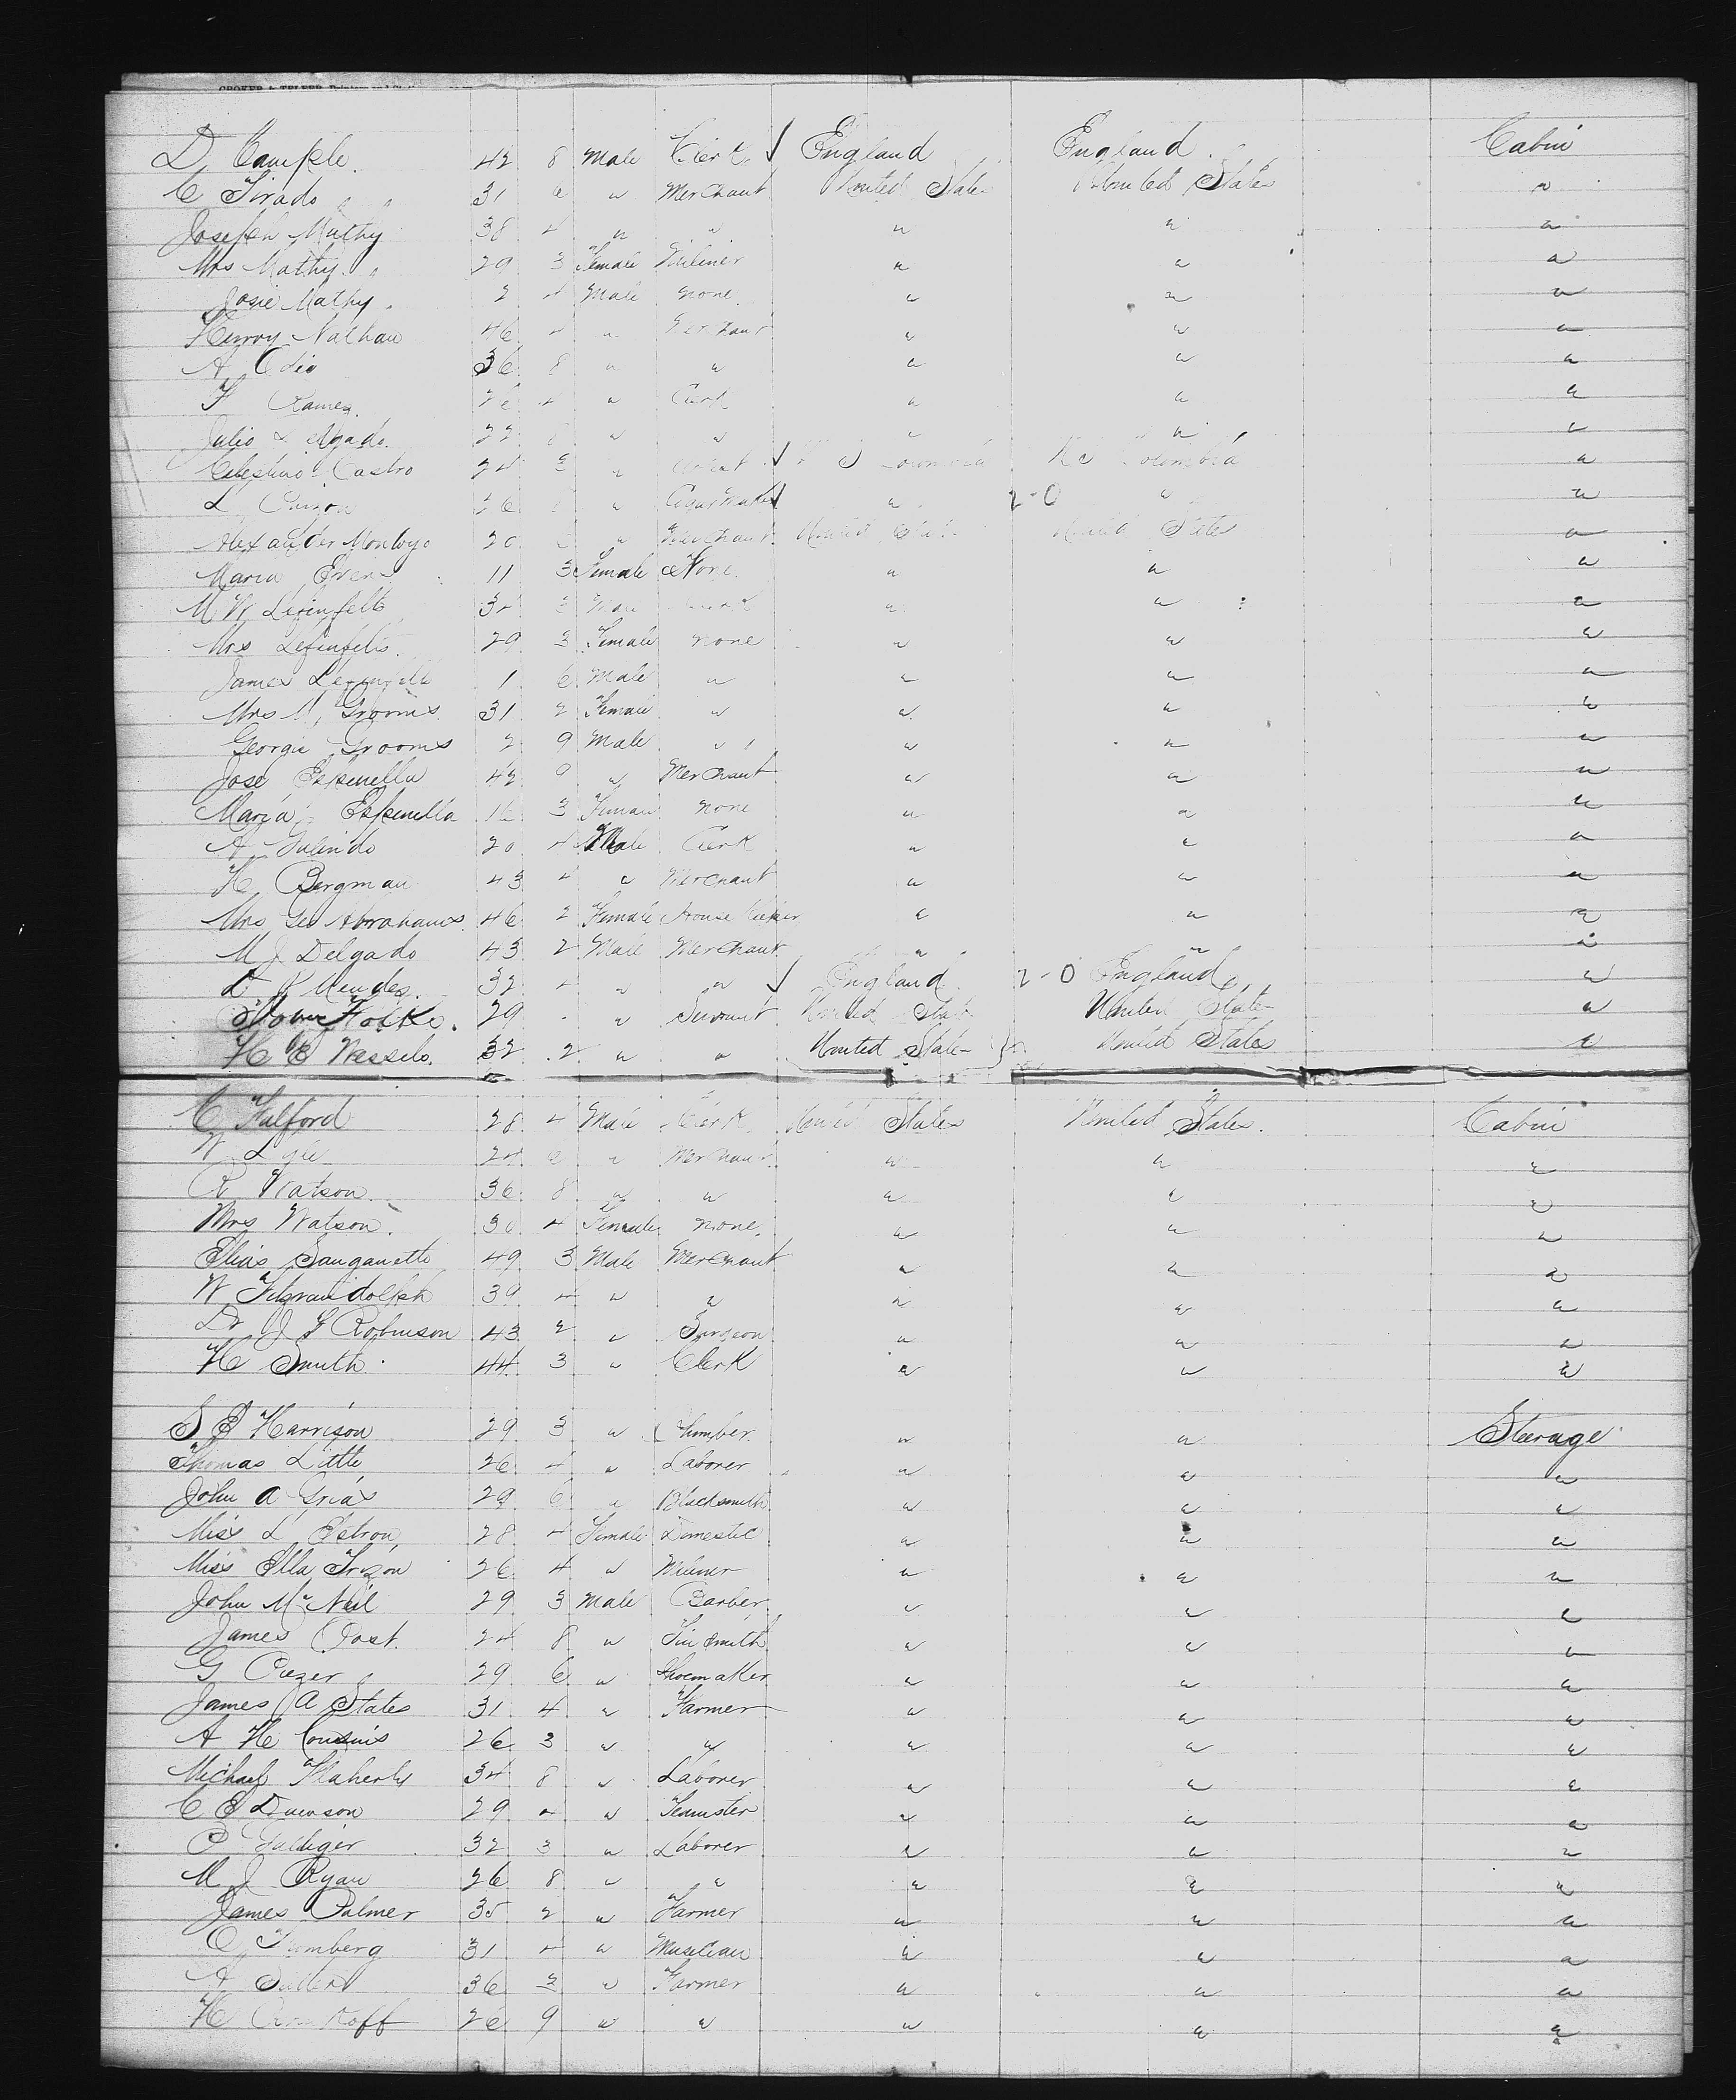 D. 42 8 Male Clerk England England Cabin
C Tirado 31 6 " Merchant United States United States "
Joseph Mathy 38 4 " " " " "
Mrs Mathy 29 3 Female Miliner " " "
Josie Mathy 2 4 Male none " " "
Henry Nathan 46 4 " Merchant " " "
A Odio 36 8 " " " " "
F 26 4 " Clerk " " "
Julio Delgado 22 8 " " " " "
Celestino Castro 24 3 " Colombia Colombia "
L 26 8 " Cigar Maker " 2-0 " "
Alexander Montoyo 20 6 " Merchant United States United States "
Maria 11 3 Female None " " "
M W 34 3 Male Clerk " " "
Mrs 29 3 Female none " " "
James 1 6 Male " " " "
Mrs M. Grooms 31 2 Female " " " "
Georgie Grooms 2 9 Male " " " "
Jose Espinella 42 9 " Merchant " " "
Maria Espinella 16 3 Female none " " "
A Galindo 20 4 Male Clerk " " "
H Bergman 43 4 " Merchant " " "
Mrs Geo Abrahams 46 2 Female House Keeper " " "
M J Delgado 43 2 Male Merchant " " "
D R Mendes 32 4 " " England 2-0 England "
29 " Servant United States United States "
H C Wessels 32 2 " " United States United States "
C Fulford 28 4 Male Clerk United States United States Cabin
W Lyle 24 6 " Merchant " " "
R Watson 36 8 " " " " "
Mrs Watson 30 4 Female none " " "
Elias Sanganetto 49 3 Male Merchant " " "
W Fitzrandolph 39 4 " " " " "
Dr J G Robinson 43 2 " Surgeon " " "
H Smith 44 3 " Clerk " " "
S E Harrison 29 3 " Plumber " " Steerage
Thomas Little 26 4 " Laborer " " "
John A Grias 29 6 " Blacksmith " " "
Miss L Estron 28 4 Female Domestic " " "
Miss Ella 26 4 " Miliner " " "
John McNeil 29 3 Male Barber " " "
James Post 24 8 " Tin Smith " " "
G 29 6 " Shoemaker " " "
James A States 31 4 " Farmer " " "
A H Cousins 26 3 " " " " "
Michael Flaherty 34 8 " Laborer " " "
C E Dawson 29 4 " Teamster " " "
P 32 3 " Laborer " " "
M J Ryan 26 8 " " " " "
James Palmer 35 2 " Farmer " " "
31 4 " Musician " " "
A 36 3 " Farmer " " "
H 26 9 " " " " "